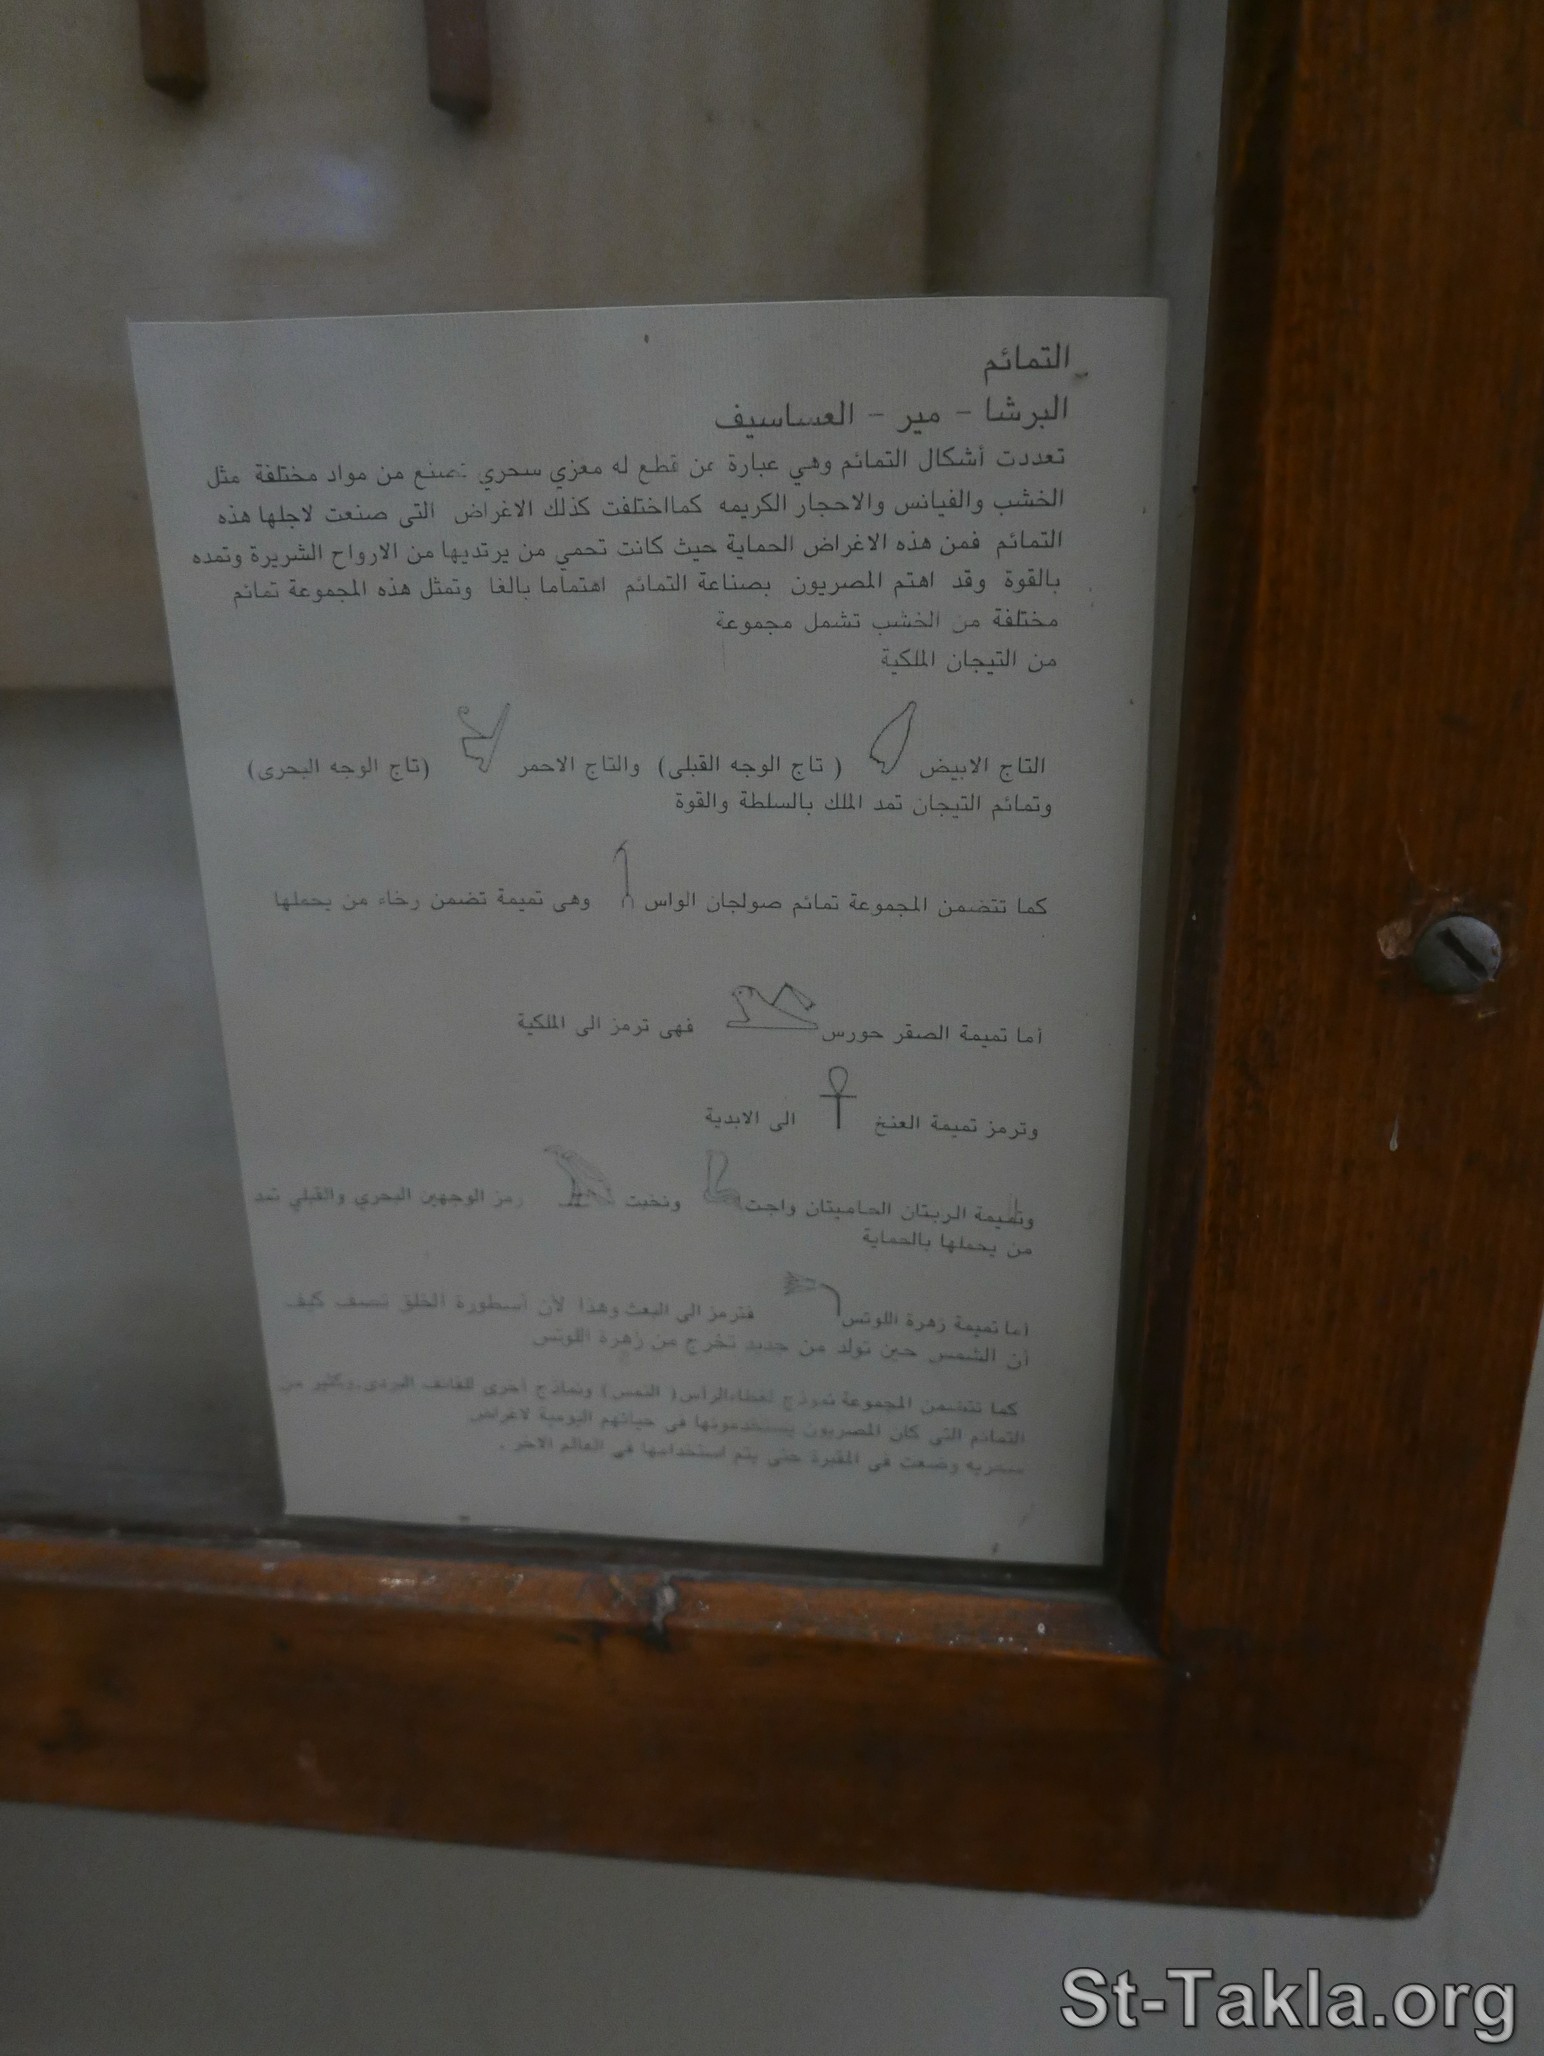 التمائم
البرشا - مير - العساسيف
تعددت أشكال التمائم وهي عبارة عن قطع له مغزي سحري تصنع من مواد مختلفة مثل
الخشب والفيانس والاحجار الكريمه كمااختلفت كذلك الاغراض التى صنعت لاجلها هذه
التمائم فمن هذه الاغراض الحماية حيث كانت تحمي من يرتديها من الارواح الشريرة وتمده
بالقوة وقد اهتم المصريون بصناعة التمائم اهتماما بالغا وتمثل هذه المجموعة تمائم
مختلفة من الخشب تشمل مجموعة
من التيجان الملكية
التاج الابيض ( تاج الوجه القبلى) والتاج الاحمر (تاج الوجه البحرى)
وتمائم التيجان تمد الملك بالسلطة والقوة
كما تتضمن المجموعة تمائم صولجان الواس وهى تميمة تضمن رخاء من يحملها
أما تميمة الصقر حورس فهى ترمز الى الملكية
وترمز تميمة العنخ الى الابدية
وتميمة الربتان الحاميتان واجت ونخبت رمز الوجهين البحري والقبلي تمد
من يحملها بالحماية
أما تميمة زهرة اللوتس فترمز الى البعث وهذا لأن أسطورة الخلق تصف كيف
أن الشمس حين تولد من جديد تخرج من زهرة اللوتس
كما تتضمن المجموعة نموذج لغطاءالرأس( النمس) ونماذج أخرى للفائف البردى.وكثير من
التمائم التى كان المصريون يستخدمونها فى حياتهم اليومية لاغراض
سحريه وضعت فى المقبرة حتى يتم استخدامها فى العالم الاخر .
St-Takla.org